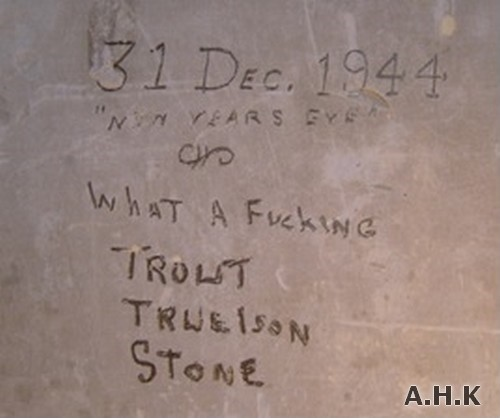 31 DEC. 1944
"NEW YEARS EVE"
WHAT A FUCKING
TROUT
TRUELSON
STONE
A.H.K